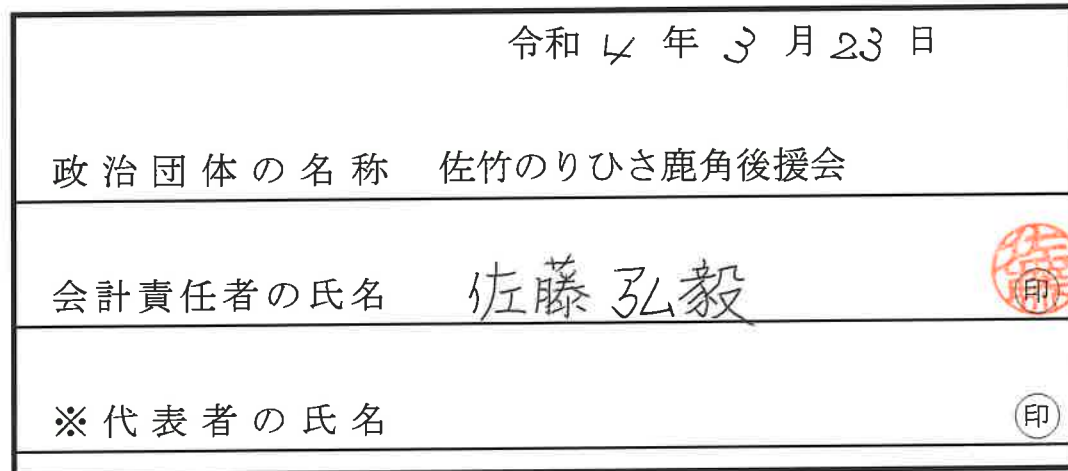 令和 4 年 3 月 23 日
政治団体の名称 佐竹のりひさ鹿角後援会
会計責任者の氏名 佐藤 弘毅 佐藤 印
※代表者の氏名 印